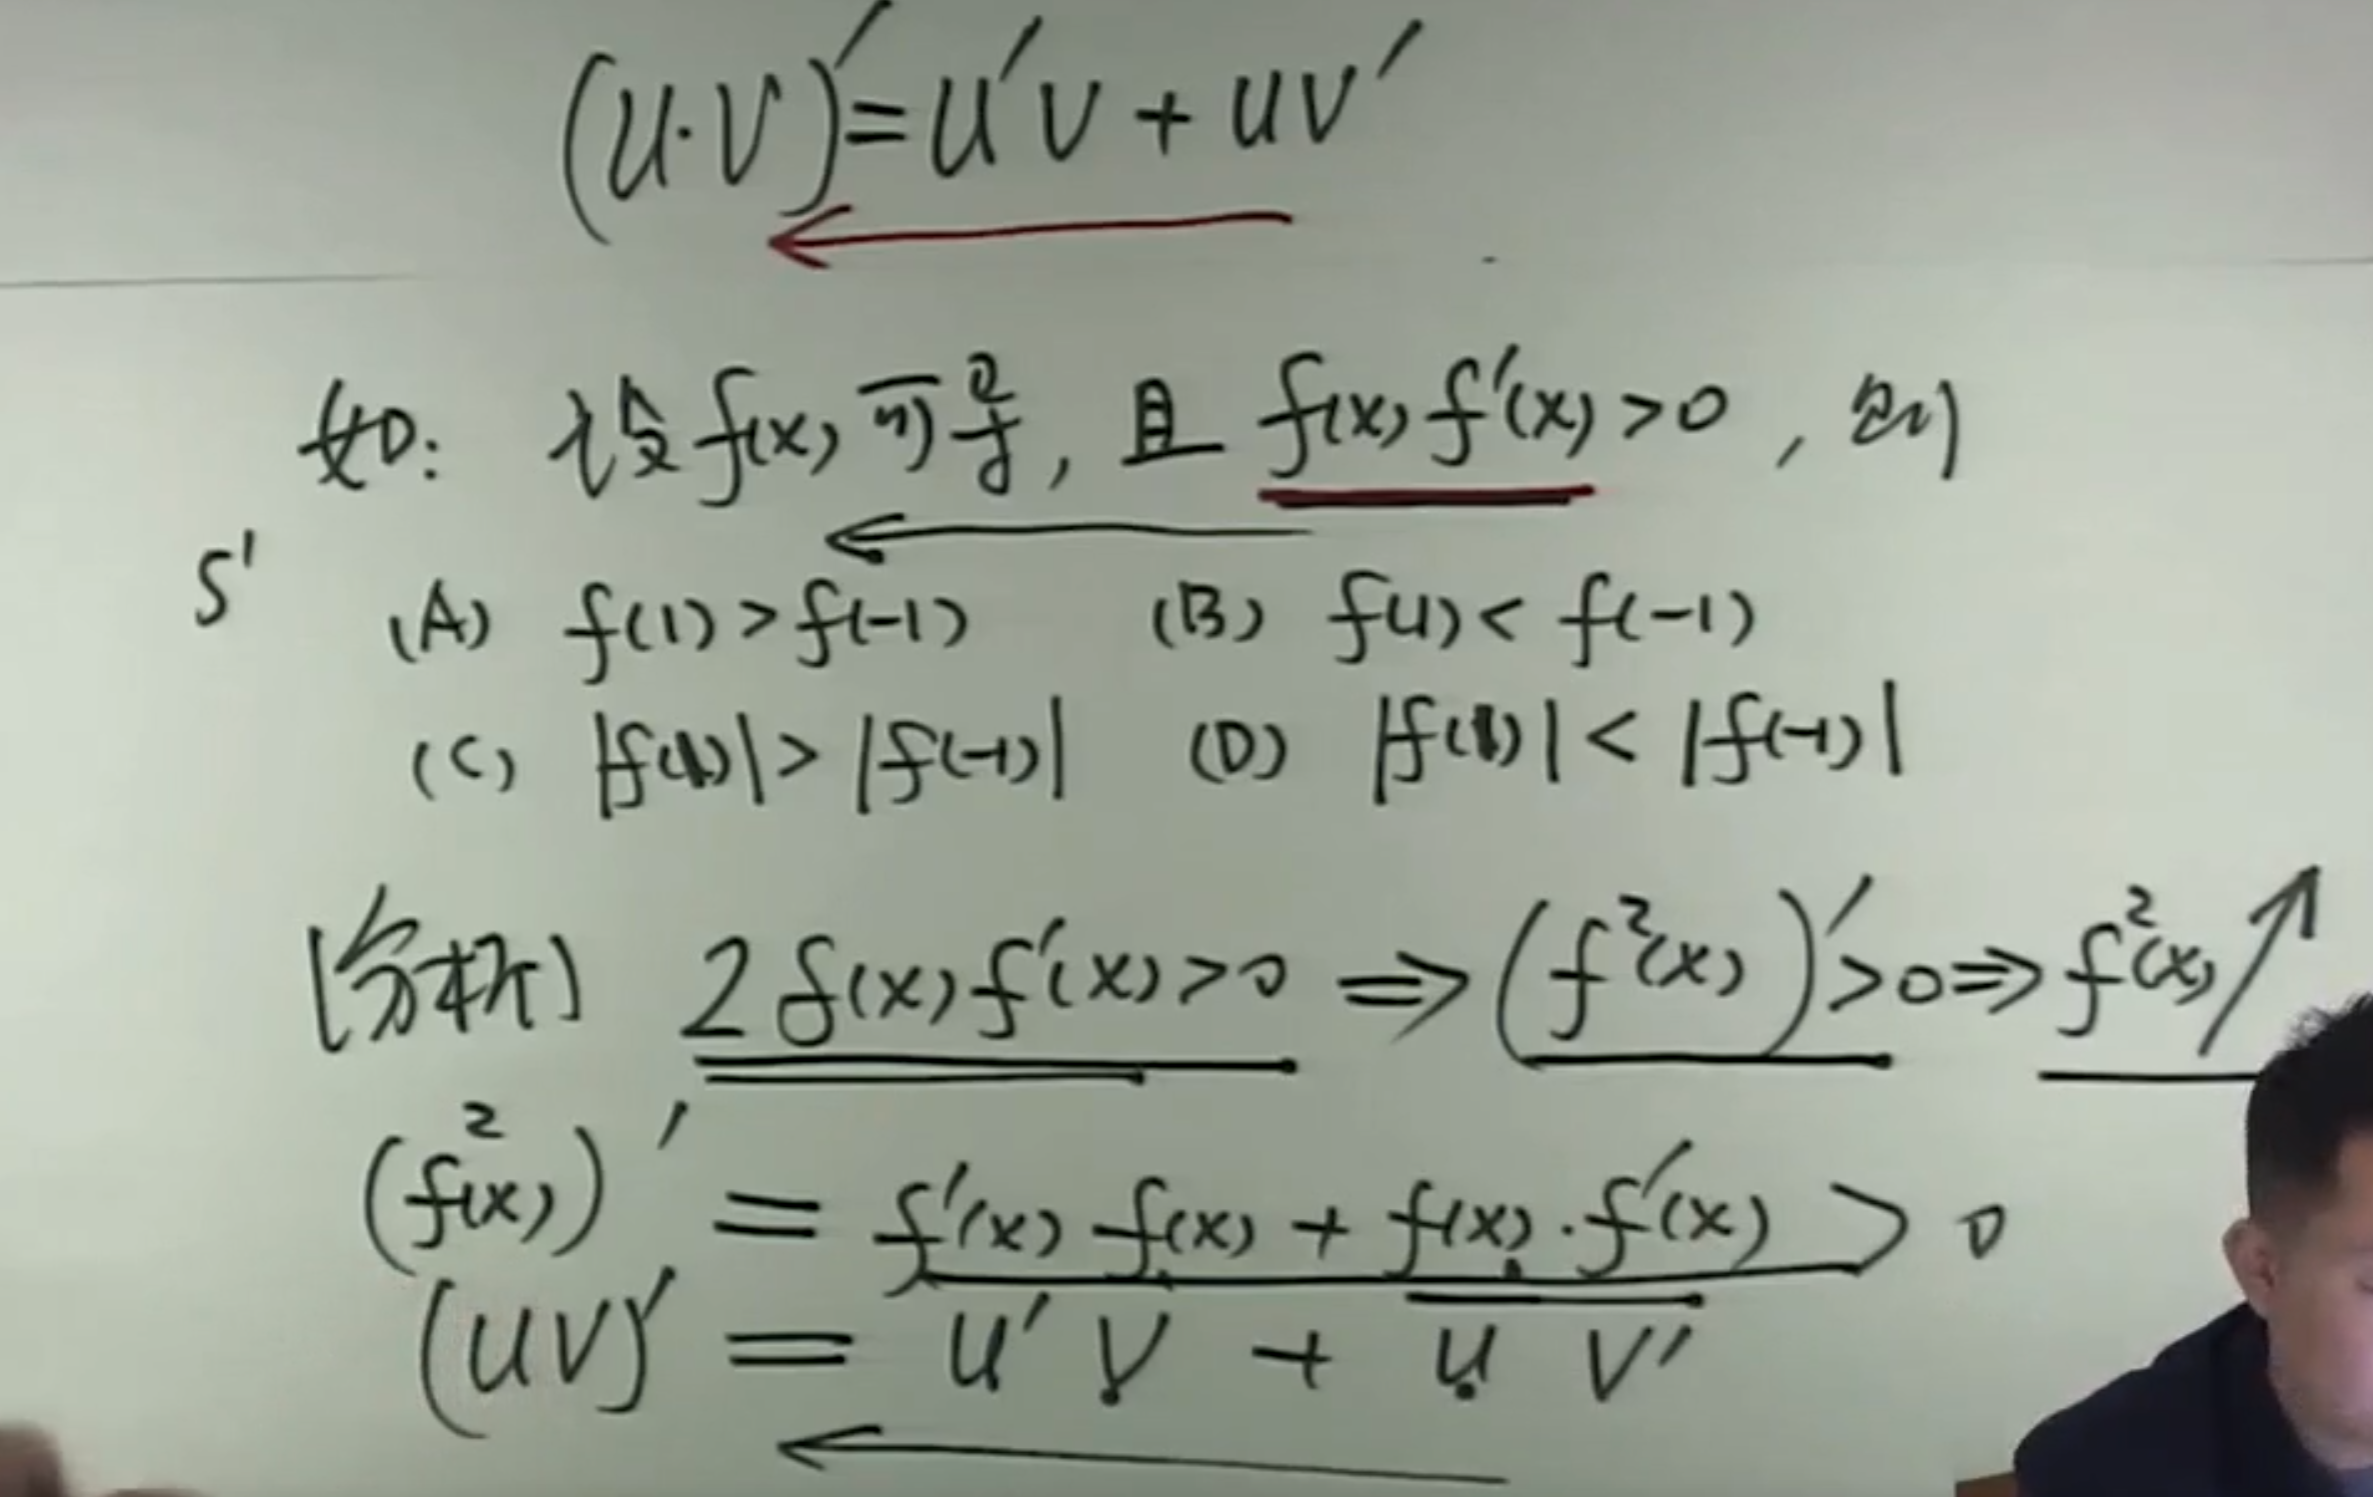 (u·v)′=u′v+uv′
如: 设f(x)可导, 且 f(x)f′(x)>0, 则
5′ (A) f(1)>f(-1) (B) f(1)<f(-1)
(C) |f(1)|>|f(-1)| (D) |f(1)|<|f(-1)|
[分析] 2f(x)f′(x)>0 ⇒ (f²(x))′>0 ⇒ f²(x)↗
(f²(x))′ = f′(x)f(x)+f(x)·f′(x)>0
(uv)′ = u′v + uv′